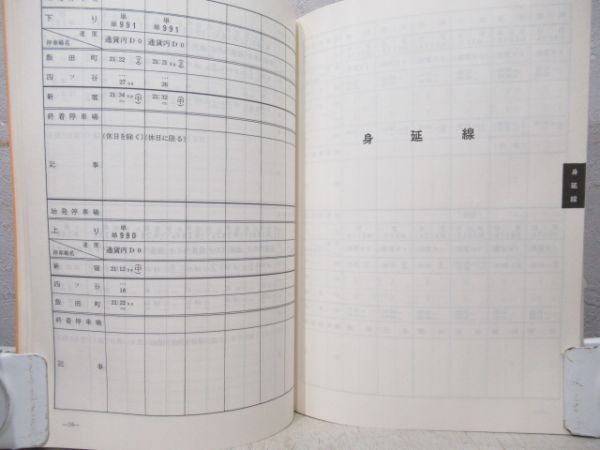 下り 単 単
単991 単991
速度 通貨丙D0 通貨丙D0
停車場名
飯田町 21:22 21:21
四ツ谷 27 26
新宿 21:34 21:32
終着停車場
(休日を除く)(休日に限る)
記事
始発停車場
上り 単
単990
速度 通貨丙D0
停車場名
新宿 21:12
四ツ谷 18
飯田町 21:23
終着停車場
記事
身延線
身延線